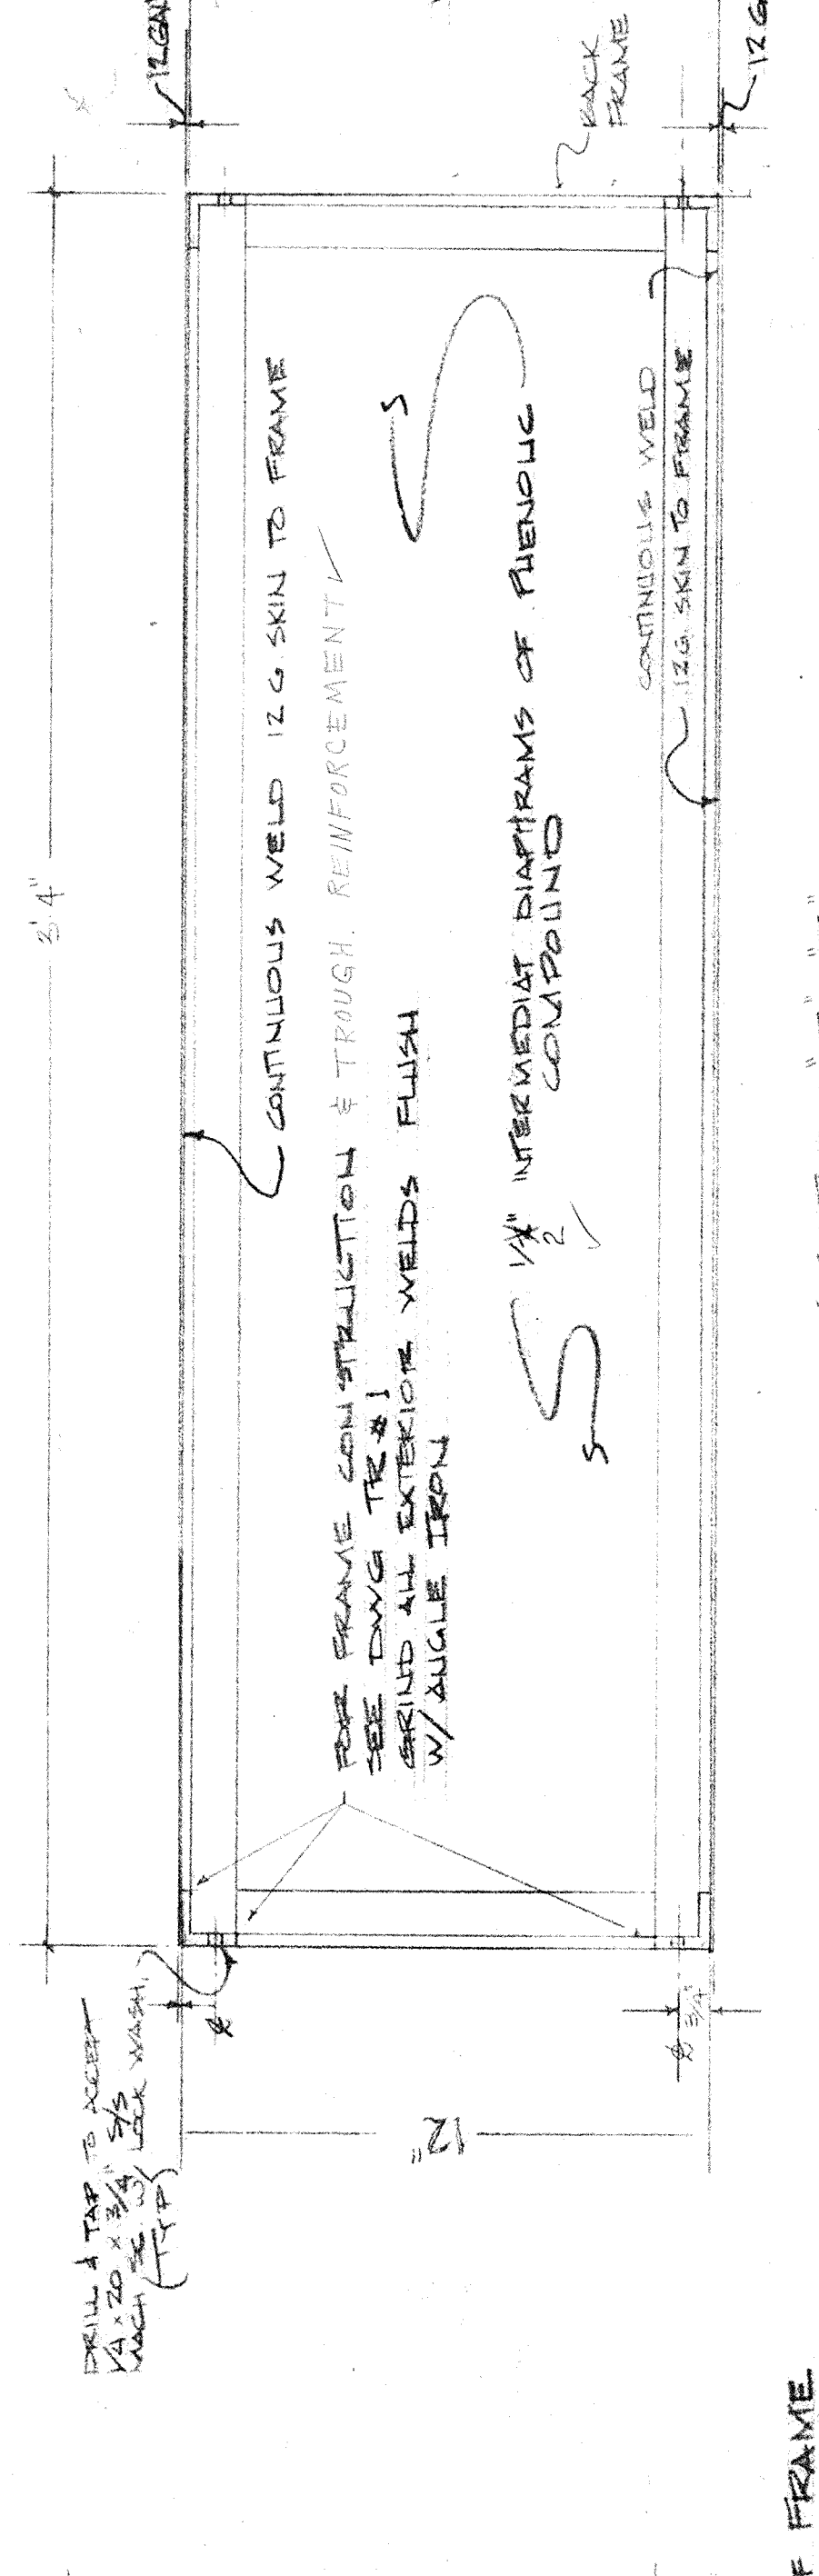 12 GA
12 G
BACK
FRAME
3'-4"
CONTINUOUS WELD 12 G SKIN TO FRAME
FOR FRAME CONSTRUCTION & TROUGH. REINFORCEMENT
SEE DWG TR #1
GRIND ALL EXTERIOR WELDS FLUSH
W/ ANGLE IRON
INTERMEDIAT DIAPHRAMS OF PHENOLIC
COMPOUND
CONTINUOUS WELD
12G. SKIN TO FRAME
DRILL & TAP TO ACCEPT
1/4 x 20 x 3/4" S/S
MACH SC. W/ LOCK WASH.
(TYP)
3/4"
12"
FRAME